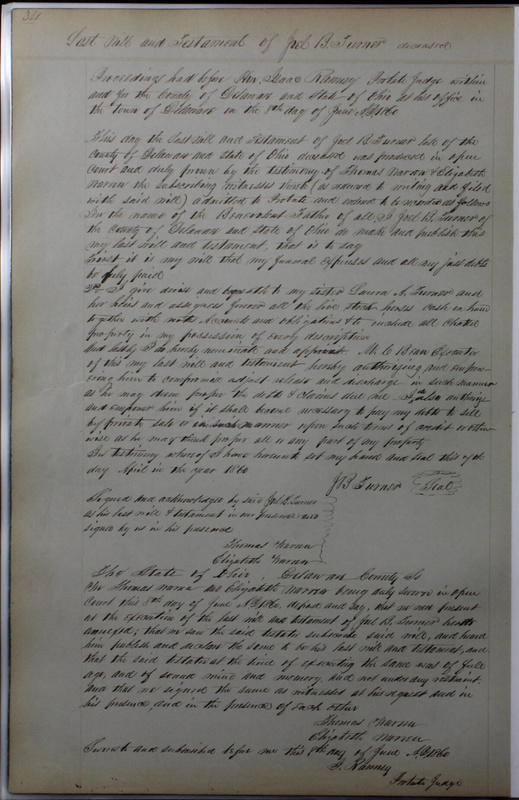 Last Will and Testament of Joel B. Turner deceased
Proceedings had before Hon. Isaac Ranney Probate Judge within
and for the County of Delaware and State of Ohio at his office in
the town of Delaware on the 8th day of June AD 1860
This day the last will and testament of Joel B Turner late of the
County of Delaware and State of Ohio deceased was produced in open
Court and duly proven by the testimony of Thomas Warren & Elizabeth
Warren the subscribing witnesses thereto (as reduced to writing and filed
with said will) admitted to Probate and ordered to be recorded as follows
In the name of the Benevolent Father of all, I Joel B. Turner of
the County of Delaware and State of Ohio do make and publish this
my last will and testament, that is to say
First it is my will that my funeral expenses and all my just debts
be fully paid
2d I give devise and bequeath to my sister Laura A. Turner and
her heirs and assigns forever all the live stock horses cash on hand
together with notes Accounts and obligations &c to all chattel
property in my possession of every description
And lastly I do hereby nominate and appoint M. C. Executor
of this my last will and testament hereby authorising and empow-
ering him to compromise adjust release and discharge in such manner
as he may deem proper the debts & claims due me I also authorize
and empower him if it shall become necessary to pay my debts to sell
by private sale or in such manner upon such terms of credit or other-
wise as he may think proper all or any part of my property
In testimony whereof I have hereunto set my hand and seal this
day April in the year 1860
J B Turner Seal
Signed and acknowledged by said Joel B. Turner
as his last will & testament in our presence and
signed by us in his presence
Thomas Warren
Elizabeth Warren
The State of Ohio, Delaware County Ss
We Thomas Warren and Elizabeth Warren being duly sworn in open
Court this 8th day of June AD 1860, depose and say, that we were present
at the execution of the last will and testament of Joel B. Turner hereto
annexed; that we saw the said testator subscribe said will, and heard
him publish and declare the same to be his last will and testament, and
that the said testator at the time of executing the same was of full
age, and of sound mind and memory, and not under any restraint:
and that we signed the same as witnesses at his request and in
his presence, and in the presence of each other
Thomas Warren
Elizabeth Warren
Sworn to and subscribed before me this 8th day of June AD 1860
I. Ranney
Probate Judge